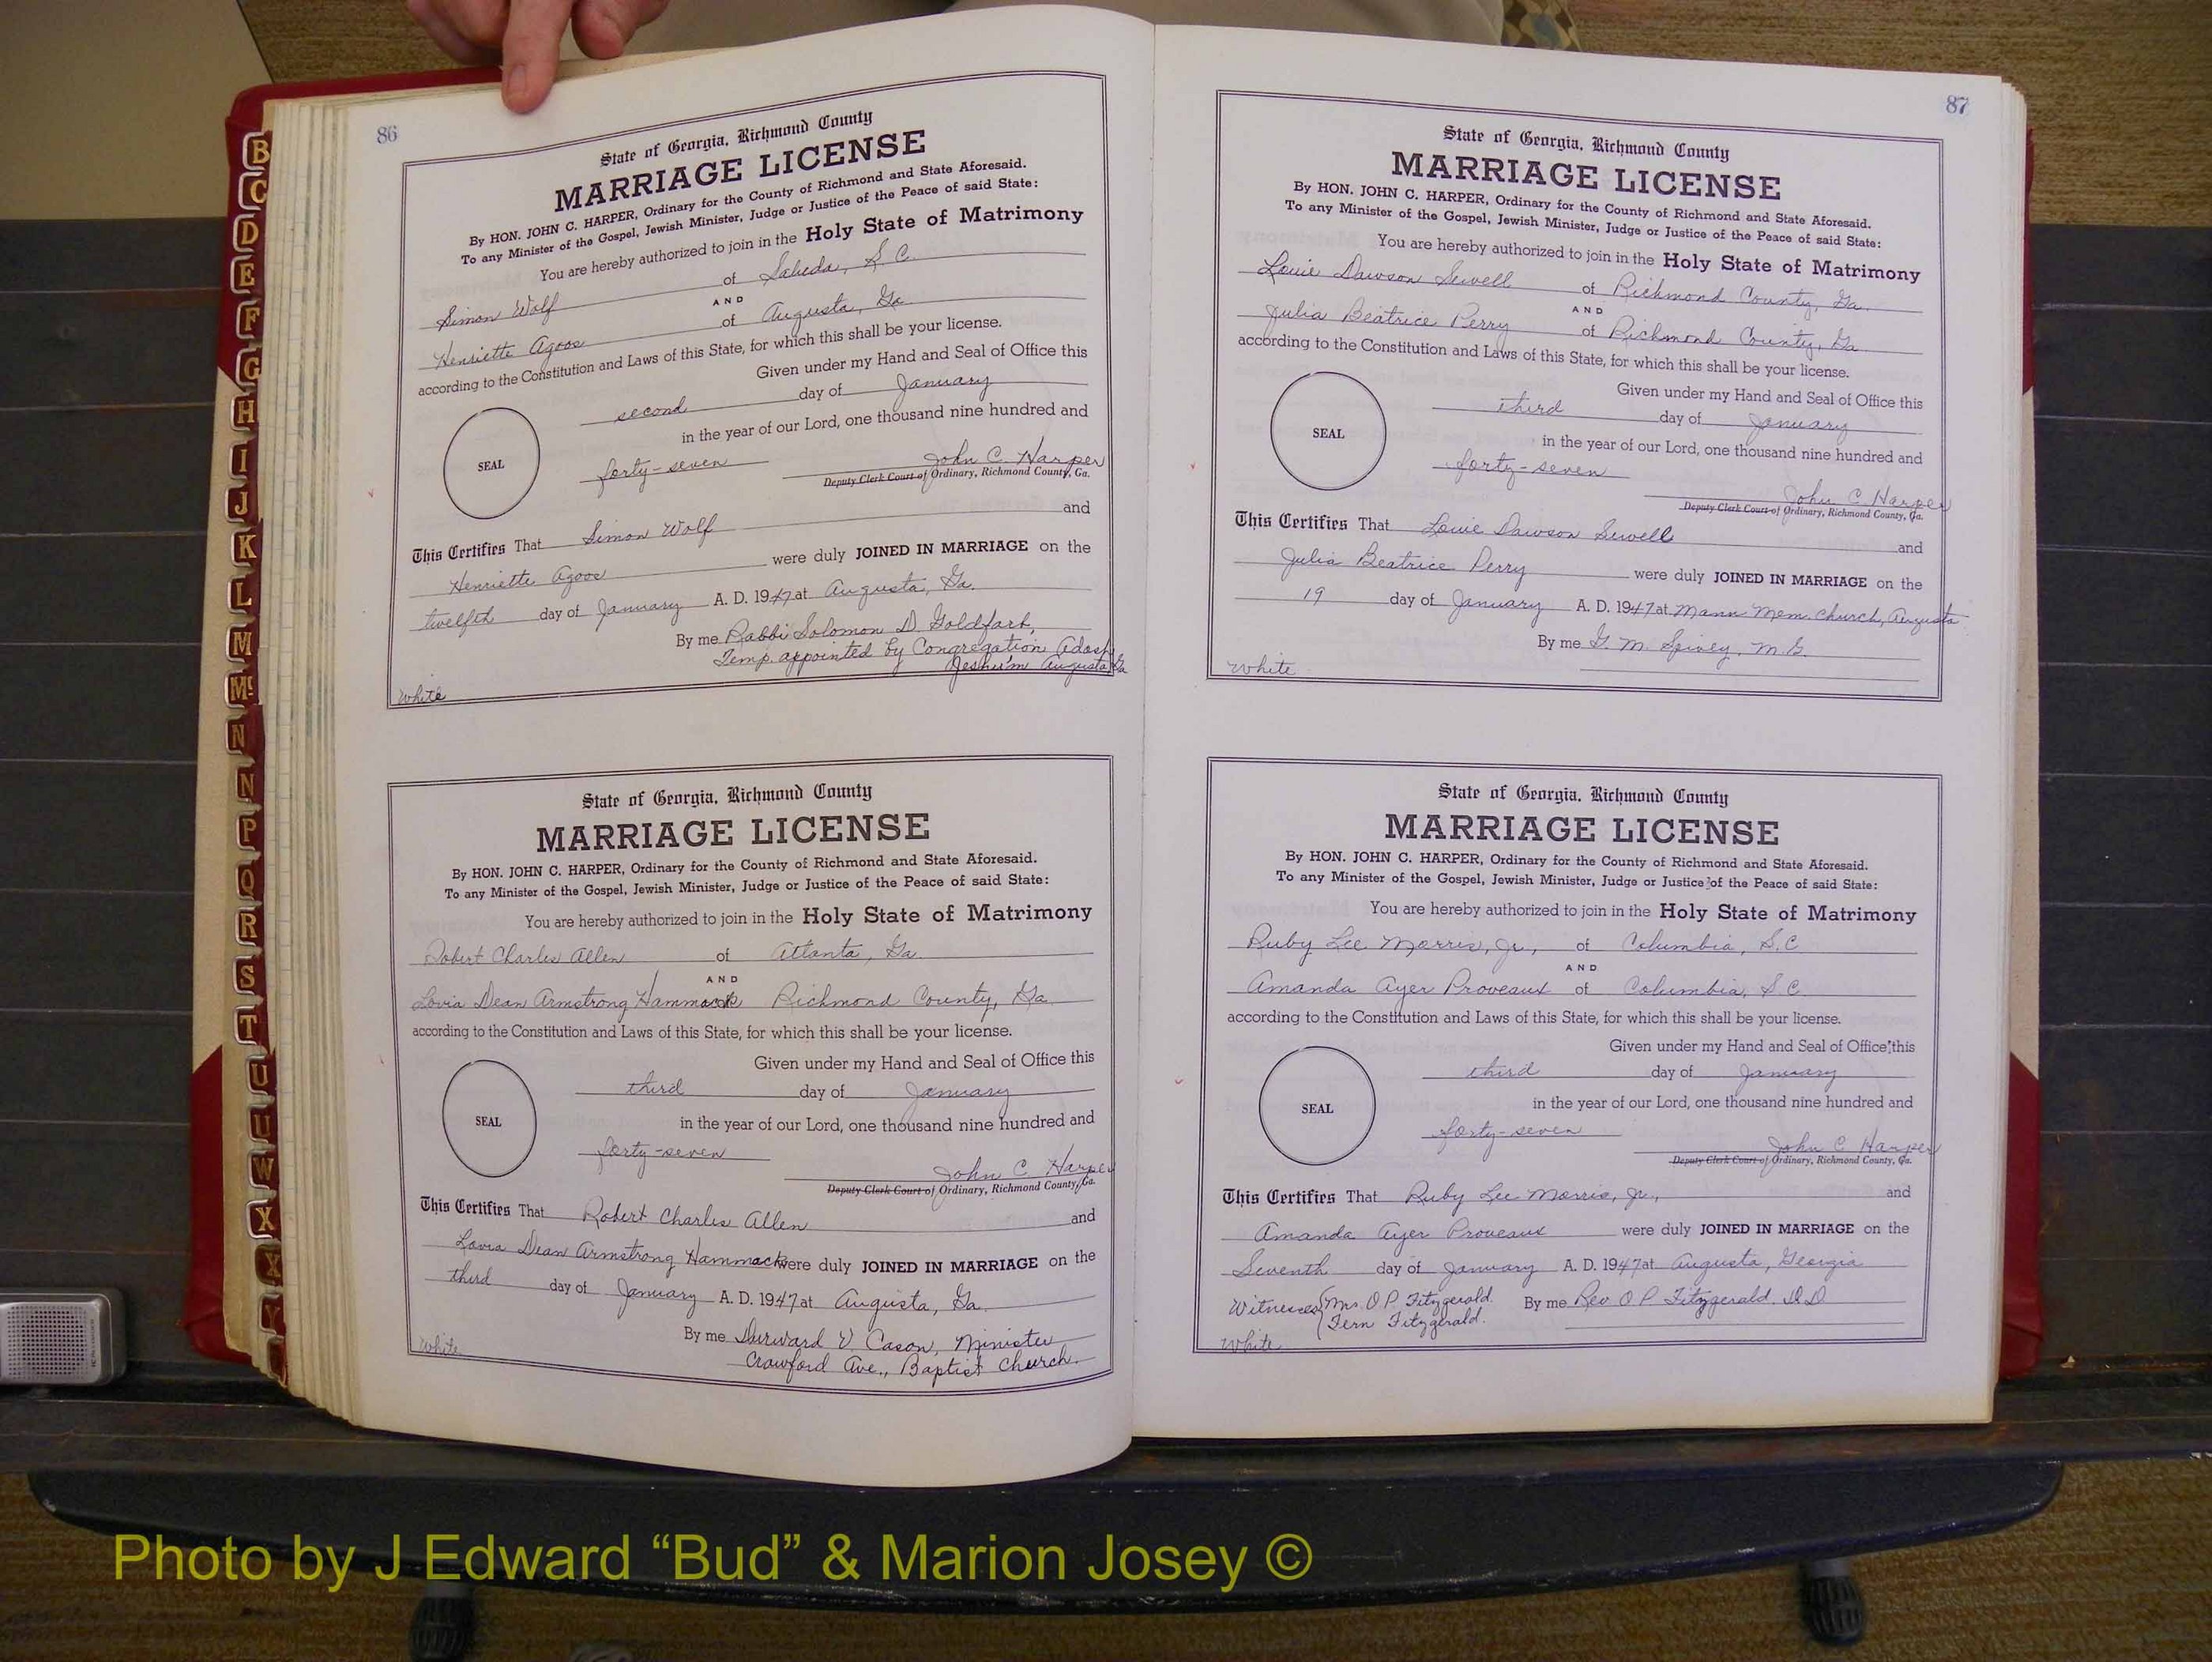 86
State of Georgia, Richmond County
MARRIAGE LICENSE
By HON. JOHN C. HARPER, Ordinary for the County of Richmond and State Aforesaid.
To any Minister of the Gospel, Jewish Minister, Judge or Justice of the Peace of said State:
You are hereby authorized to join in the Holy State of Matrimony
Simon Wolf of Saluda, S. C.
AND
Henriette Agoos of Augusta, Ga.
according to the Constitution and Laws of this State, for which this shall be your license.
Given under my Hand and Seal of Office this
second day of January
in the year of our Lord, one thousand nine hundred and
SEAL
forty-seven John C. Harper
Deputy Clerk Court of Ordinary, Richmond County, Ga.
This Certifies That Simon Wolf and
Henriette Agoos were duly JOINED IN MARRIAGE on the
twelfth day of January A. D. 1947 at Augusta, Ga.
By me Rabbi Solomon D. Goldfarb,
Temp. appointed by Congregation Adash
Jeshurn Augusta, Ga
White
State of Georgia, Richmond County
MARRIAGE LICENSE
By HON. JOHN C. HARPER, Ordinary for the County of Richmond and State Aforesaid.
To any Minister of the Gospel, Jewish Minister, Judge or Justice of the Peace of said State:
You are hereby authorized to join in the Holy State of Matrimony
Robert Charles Allen of Atlanta, Ga.
AND
Lovia Dean Armstrong Hammack Richmond County, Ga.
according to the Constitution and Laws of this State, for which this shall be your license.
Given under my Hand and Seal of Office this
third day of January
in the year of our Lord, one thousand nine hundred and
SEAL
forty-seven John C. Harper
Deputy Clerk Court of Ordinary, Richmond County, Ga.
This Certifies That Robert Charles Allen and
Lovia Dean Armstrong Hammack were duly JOINED IN MARRIAGE on the
third day of January A. D. 1947 at Augusta, Ga.
By me Durward V. Cason, Minister
Crawford Ave., Baptist Church.
White
87
State of Georgia, Richmond County
MARRIAGE LICENSE
By HON. JOHN C. HARPER, Ordinary for the County of Richmond and State Aforesaid.
To any Minister of the Gospel, Jewish Minister, Judge or Justice of the Peace of said State:
You are hereby authorized to join in the Holy State of Matrimony
Louie Dawson Sewell of Richmond County, Ga.
AND
Julia Beatrice Perry of Richmond County, Ga.
according to the Constitution and Laws of this State, for which this shall be your license.
Given under my Hand and Seal of Office this
third day of January
in the year of our Lord, one thousand nine hundred and
SEAL
forty-seven
John C. Harper
Deputy Clerk Court of Ordinary, Richmond County, Ga.
This Certifies That Louie Dawson Sewell and
Julia Beatrice Perry were duly JOINED IN MARRIAGE on the
19 day of January A. D. 1947 at Mann Mem. Church, Augusta
By me G. M. Spivey, M. G.
White
State of Georgia, Richmond County
MARRIAGE LICENSE
By HON. JOHN C. HARPER, Ordinary for the County of Richmond and State Aforesaid.
To any Minister of the Gospel, Jewish Minister, Judge or Justice of the Peace of said State:
You are hereby authorized to join in the Holy State of Matrimony
Ruby Lee Morris, Jr., of Columbia, S. C
AND
Amanda Ayer Proveaux of Columbia, S. C
according to the Constitution and Laws of this State, for which this shall be your license.
Given under my Hand and Seal of Office this
third day of January
in the year of our Lord, one thousand nine hundred and
SEAL
forty-seven John C. Harper
Deputy Clerk Court of Ordinary, Richmond County, Ga.
This Certifies That Ruby Lee Morris, Jr., and
Amanda Ayer Proveaux were duly JOINED IN MARRIAGE on the
Seventh day of January A. D. 1947 at Augusta, Georgia
Witnesses Mrs. O P. Fitzgerald. By me Rev O P Fitzgerald. D.D
Fern Fitzgerald.
White
B
C
D
E
F
G
H
I
J
K
L
M
Mc
N
N
P
Q
R
S
T
U
U
W
X
X
Y
Photo by J Edward “Bud” & Marion Josey ©